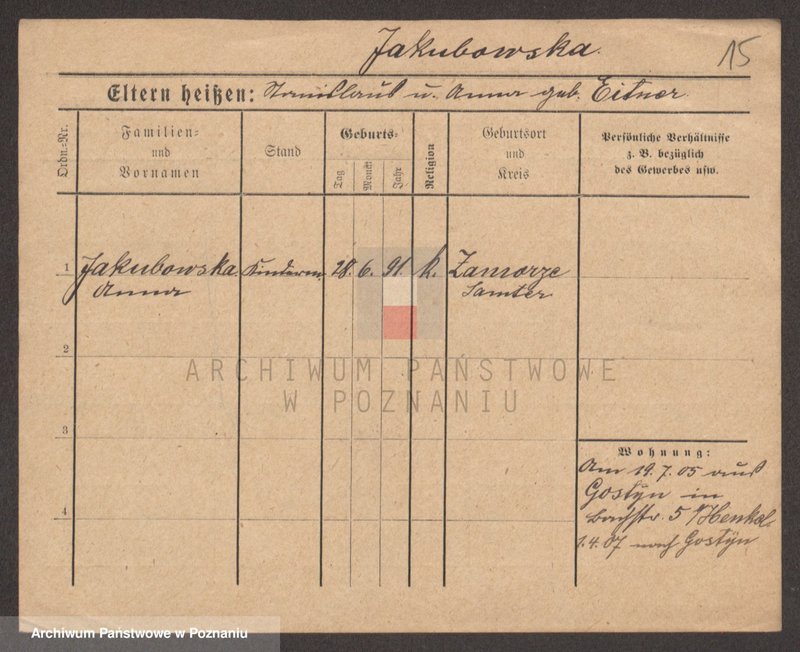 Jakubowska.
15
Eltern heißen: Stanislaus u. Anna geb. Eitner.
Ordn.-Nr.
Familien-
und
Vornamen
Stand
Geburts-
Tag
Monat
Jahr
Religion
Geburtsort
und
Kreis
Persönliche Verhältnisse
z. B. bezüglich
des Gewerbes usw.
1 Jakubowska Kinderm. 28. 6. 91. k. Zamorze
Anna Samter
2
ARCHIWUM PAŃSTWOWE
W POZNANIU
3
Wohnung:
Am 19.7.05 aus
Gostyn in
Bachstr. 5 b/Henkel
4
1.4.07 nach Gostyn
Archiwum Państwowe w Poznaniu